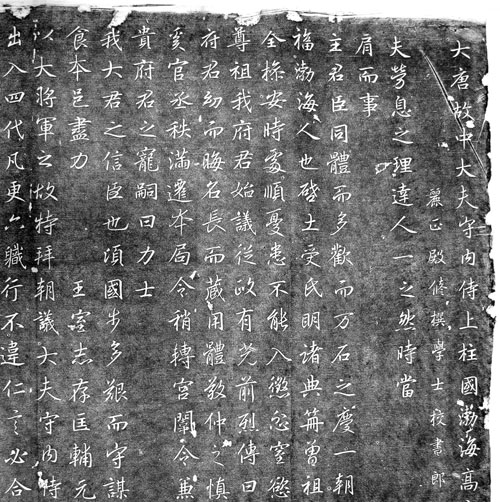 大唐故中大夫守內侍上柱國渤海高
麗正殿修撰學士校書郎
夫勞息之理達人一之然時當
肩而事
主君臣同體而多歡而万石之慶一朝
福渤海人也啓土受氏明諸典冊曾祖
全操安時處順憂患不能入懲忿窒慾
尊祖我府君始議從政有光前烈傳曰
府君幼而晦名長而藏用體敬仲之慎
奚官丞秩滿遷本局令稍轉宮闈令兼
貴府君之寵嗣曰力士
我大君之信臣也頃國步多艱而守謀
食本邑盡力 王室志存匡輔元
以大將軍之故特拜朝議大夫守內侍
出入四代凡更六職行不違仁言必合